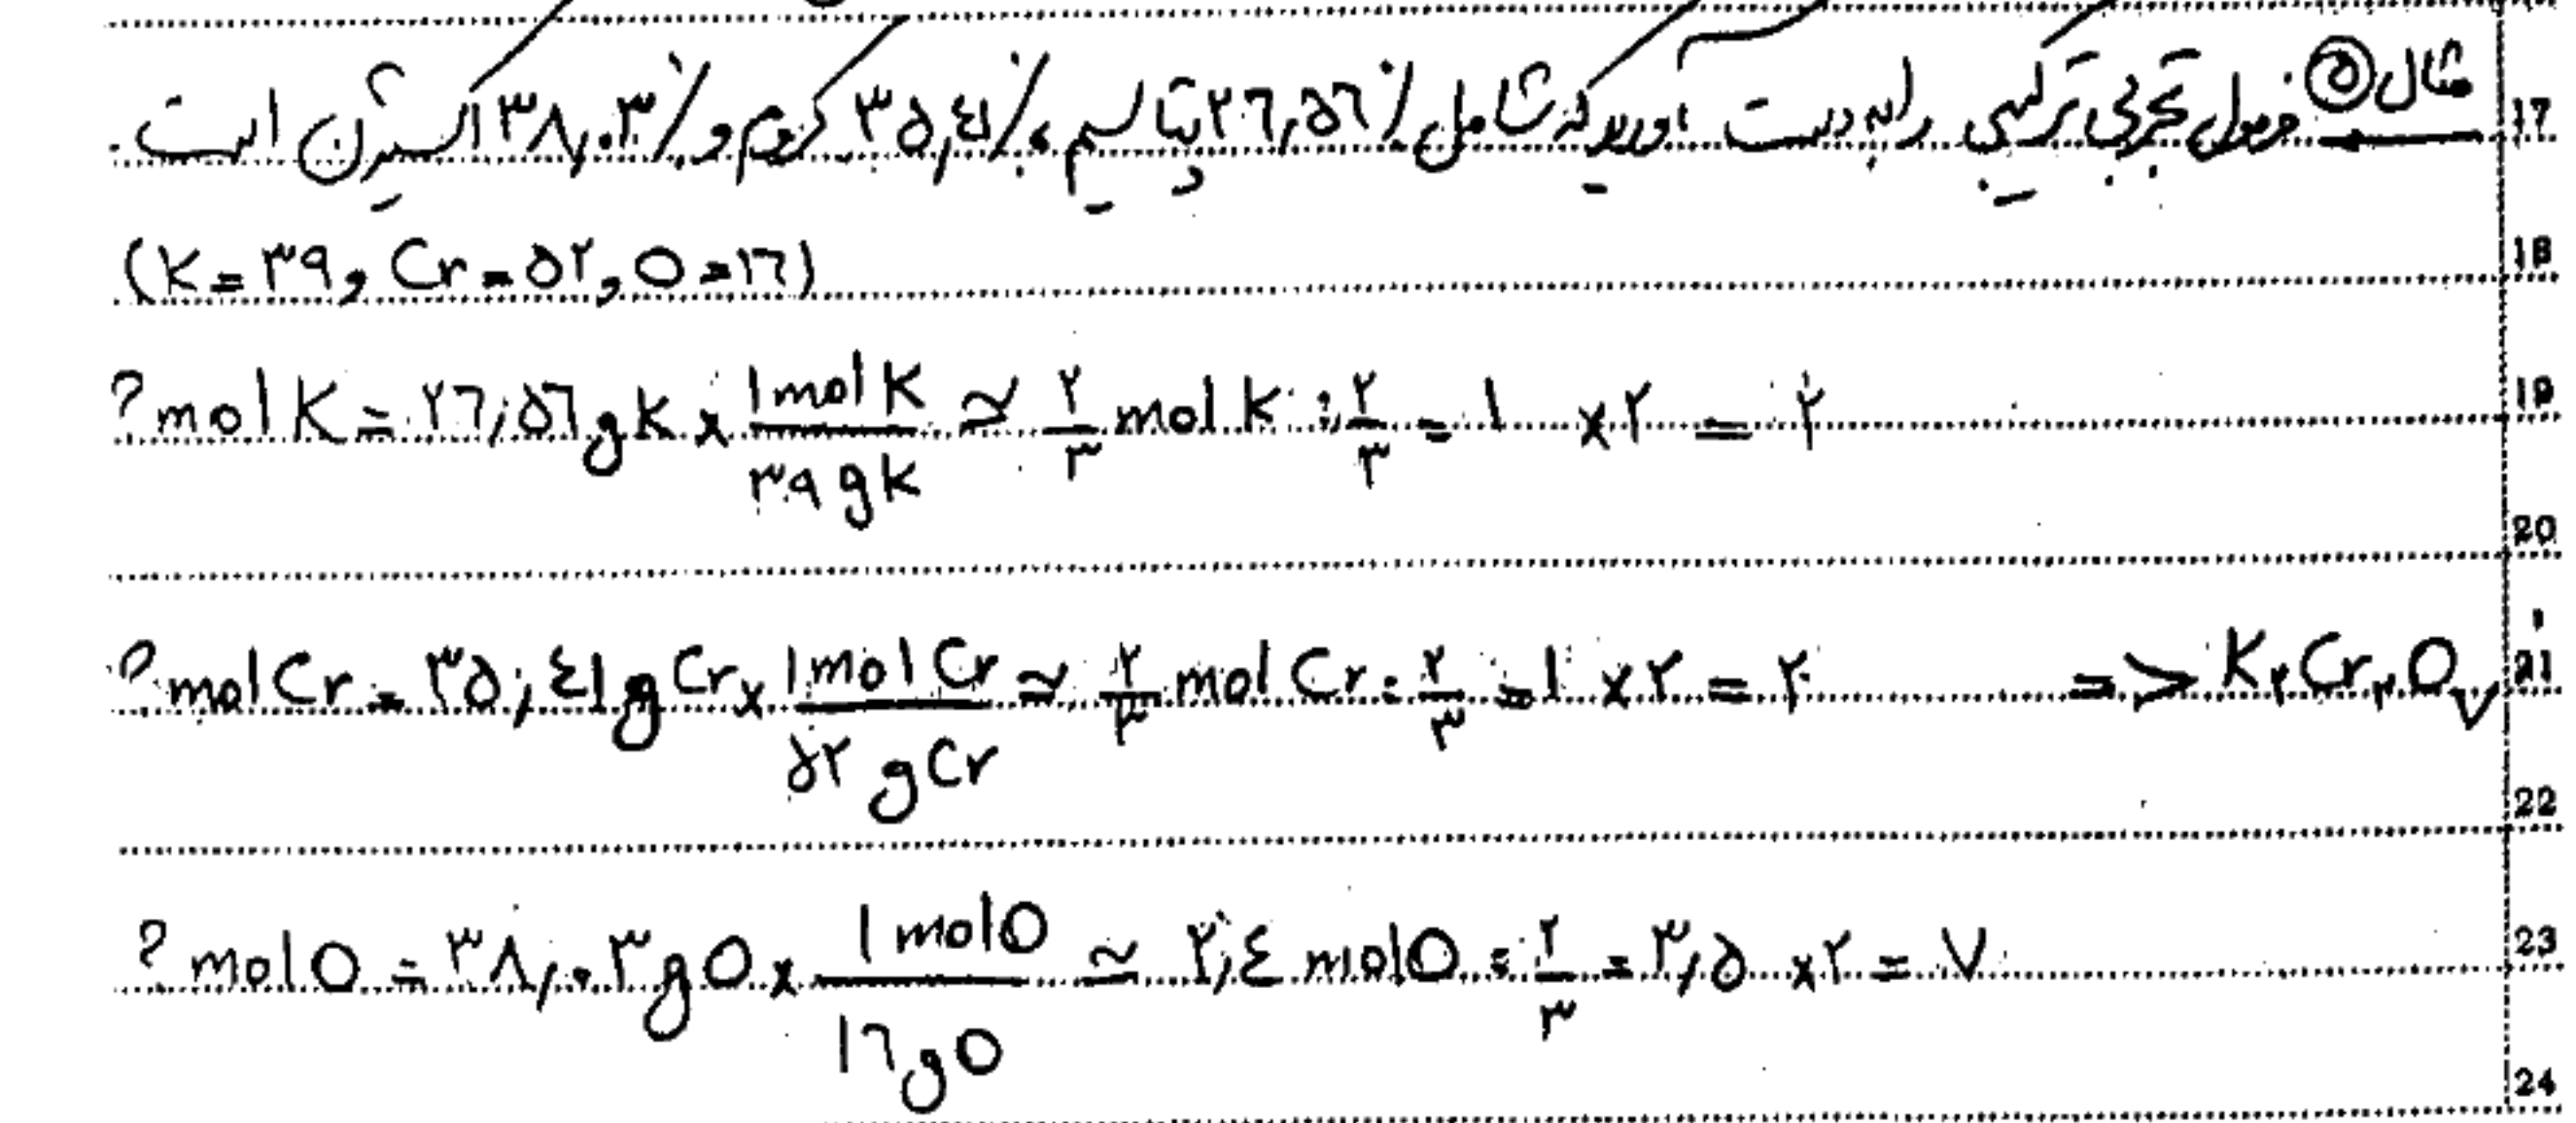 مثال ۵ فرمول تجربی ترکیبی را به دست آورید که شامل ۲۶,۵۶٪ پتاسیم، ۳۵,۴۱٪ کروم و ۳۸,۰۳٪ اکسیژن است.
17
(K = ۳۹, Cr = ۵۲, O = ۱۶)
18
? mol K = ۲۶,۵۶ g K × ۱ mol K / ۳۹ g K ≃ ۲/۳ mol K ÷ ۲/۳ = ۱ × ۲ = ۲
19
20
? mol Cr = ۳۵,۴۱ g Cr × ۱ mol Cr / ۵۲ g Cr ≃ ۲/۳ mol Cr ÷ ۲/۳ = ۱ × ۲ = ۲ => K₂Cr₂O₇
21
22
? mol O = ۳۸,۰۳ g O × ۱ mol O / ۱۶ g O ≃ ۲,۴ mol O ÷ ۲/۳ = ۳,۵ × ۲ = ۷
23
24